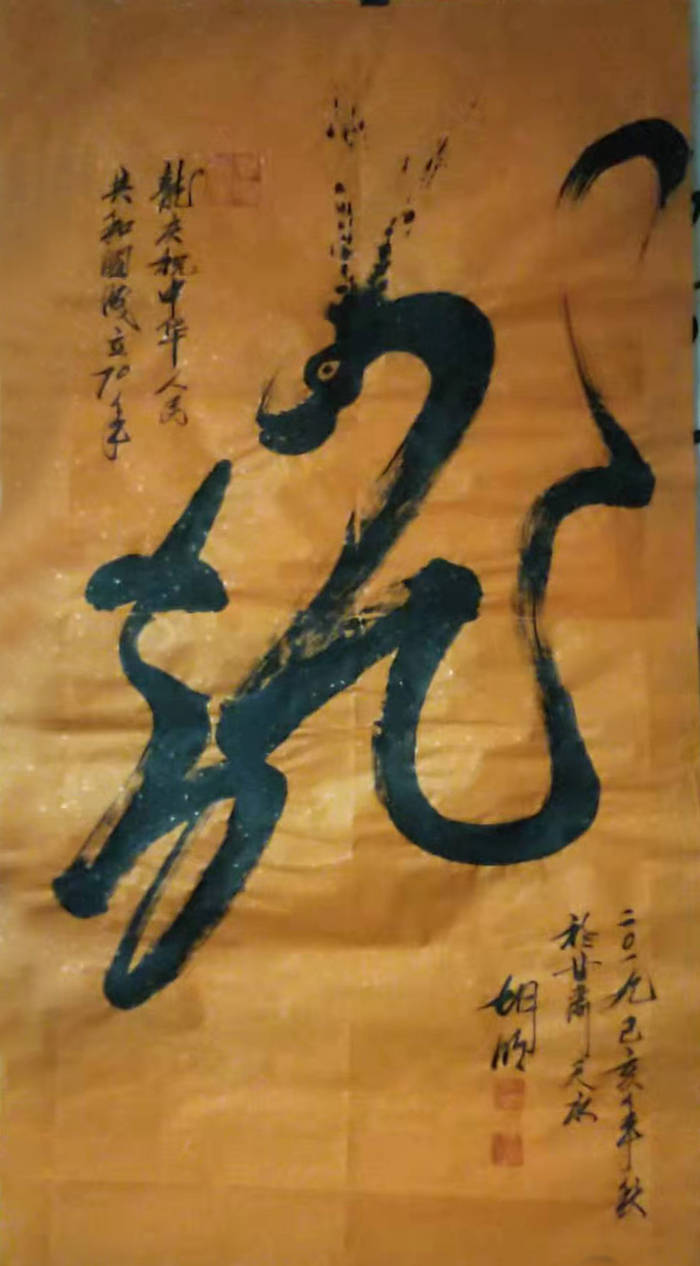 龍
龍夫祝中华人民
共和國成立70年
二〇一九己亥年秋
於甘肃天水
胡顺